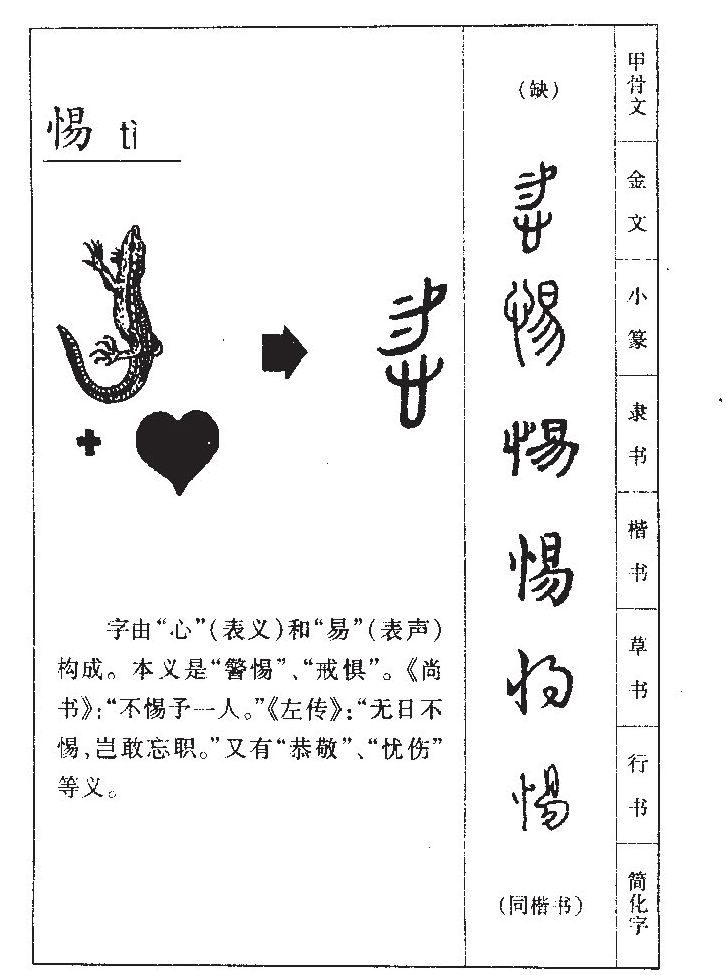 惕 tì
字由“心”(表义)和“易”(表声)
构成。本义是“警惕”、“戒惧”。《尚
书》:“不惕予一人。”《左传》:“无日不
惕,岂敢忘职。”又有“恭敬”、“忧伤”
等义。
(缺)
惕
惕
惕
惕
惕
惕
(同楷书)
甲骨文
金文
小篆
隶书
楷书
草书
行书
简化字